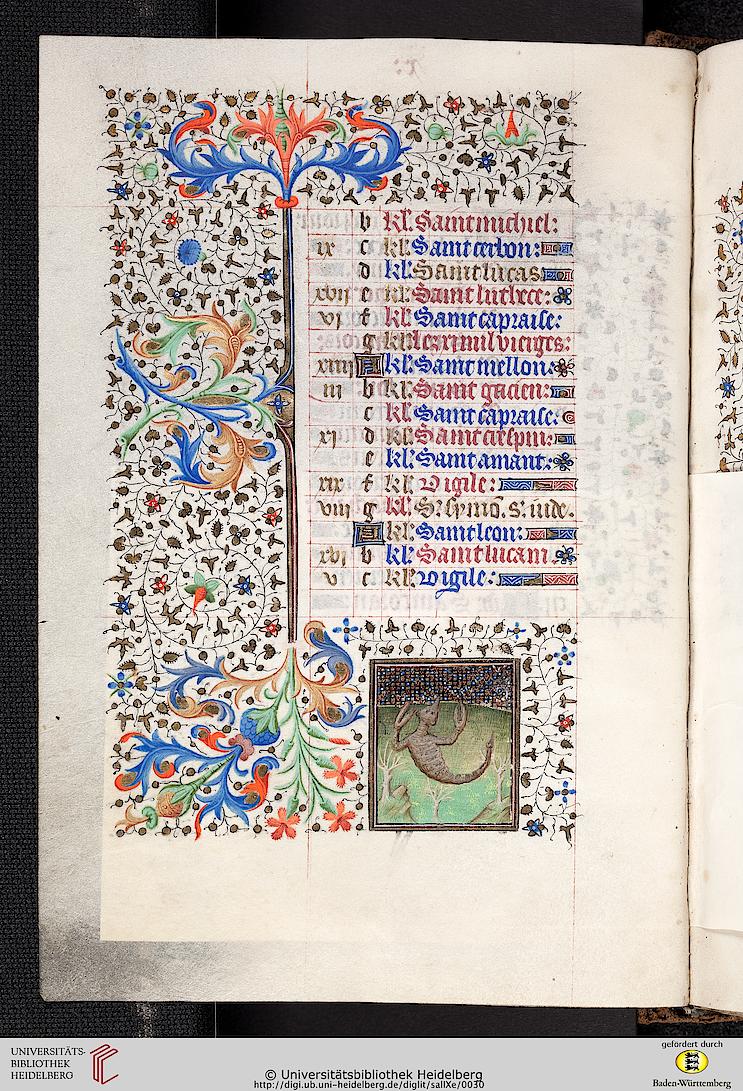 b kl'. Saint michiel:
ix c kl'. Saint cerbon:
d kl'. Saint lucas
xvij e kl'. Saint luthece:
vj f kl'. Saint capraise:
g kl' les xi mil vierges:
xiiij A kl'. Saint mellon:
iij b kl'. Saint gacien:
c kl'. Saint capraise:
xj d kl'. Saint crespin:
e kl'. Saint amant:
xix f kl'. Vigile:
viij g kl'. S. symō. s. iude.
A kl'. Saint leon:
xvj b kl'. Saint lucain.
v c kl'. Vigile:
UNIVERSITÄTS-
BIBLIOTHEK
HEIDELBERG
© Universitätsbibliothek Heidelberg
http://digi.ub.uni-heidelberg.de/diglit/salIXe/0030
gefördert durch
Baden-Württemberg